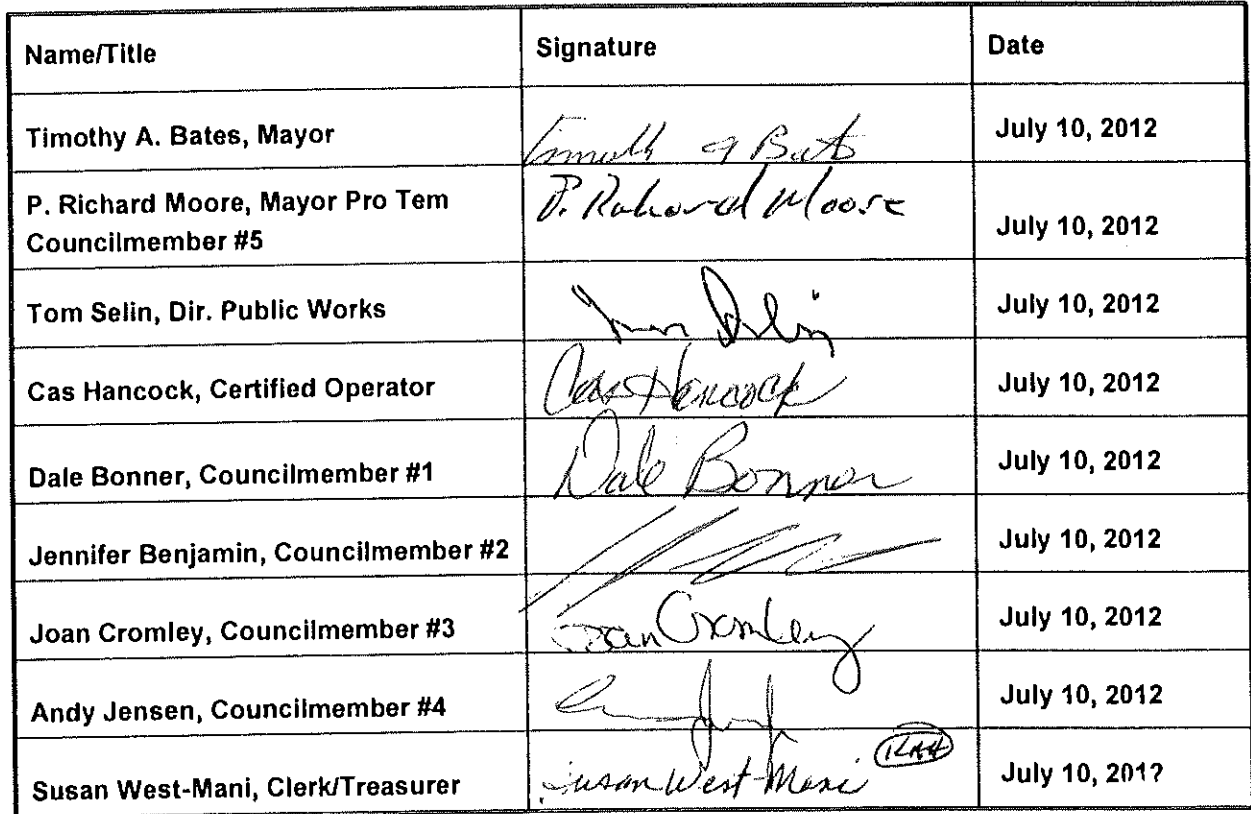 Name/Title Signature Date
Timothy A. Bates, Mayor Timothy A Bates July 10, 2012
P. Richard Moore, Mayor Pro Tem P. Richard Moore
Councilmember #5 July 10, 2012
Tom Selin, Dir. Public Works Tom Selin July 10, 2012
Cas Hancock, Certified Operator Cas Hancock July 10, 2012
Dale Bonner, Councilmember #1 Dale Bonner July 10, 2012
Jennifer Benjamin, Councilmember #2 July 10, 2012
Joan Cromley, Councilmember #3 Joan Cromley July 10, 2012
Andy Jensen, Councilmember #4 July 10, 2012
Susan West-Mani, Clerk/Treasurer Susan West-Mani July 10, 201?